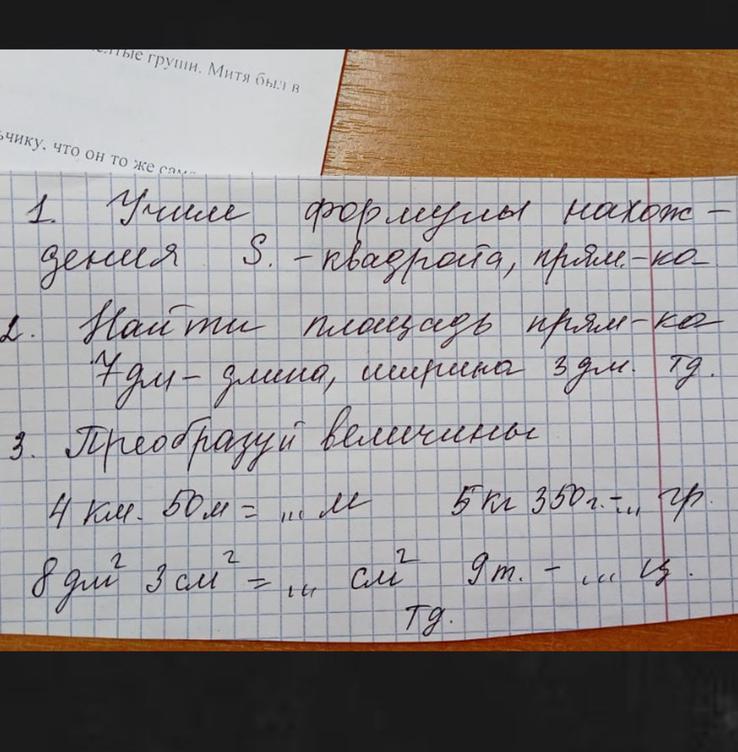 желтые груши. Митя был в
ьчику, что он то же сам
1. Учим формулы нахож-
дения S. - квадрата, прям.-ка
2. Найти площадь прям-ка
7дм - длина, ширина 3дм. тд.
3. Преобразуй величины
4 км. 50м = ... м 5кг 350г. - ... гр.
8дм² 3см² = ... см² 9т. - ... ц.
тд.